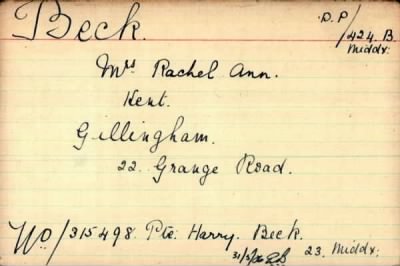 Beck. D.P/424.B.
Middx:
Mrs Rachel Ann.
Kent.
Gillingham.
22. Grange Road.
Wo/315498. Pte: Harry. Beck.
23. Middx: